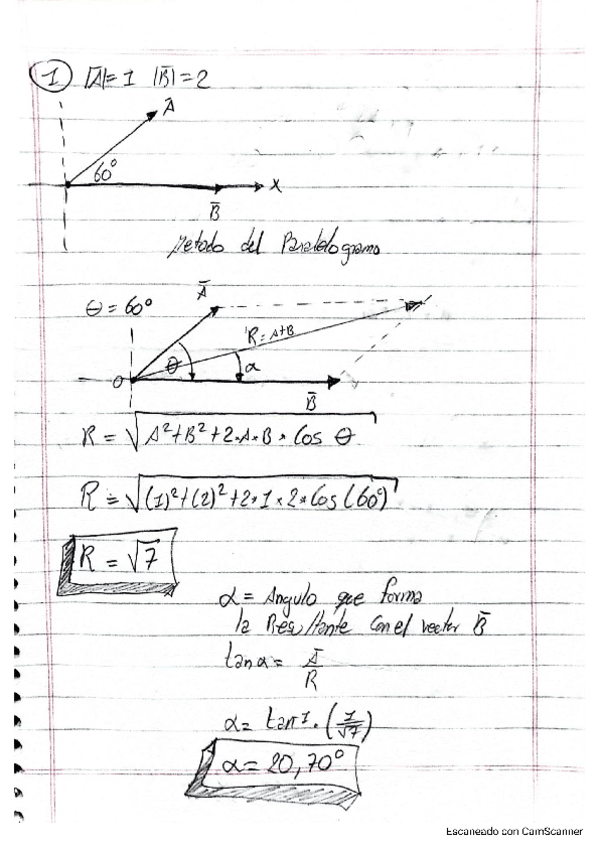 1 |A̅|=1 |B̅|=2
A̅
60°
x
B̅
Metodo del Paralelogramo
θ = 60°
A̅
R = A+B
θ
α
O
B̅
R = √A²+B²+2·A·B·Cos θ
R = √(1)²+(2)²+2·1·2·Cos(60°)
R = √7
α = Angulo que forma
la Resultante con el vector B̅
tan α = A̅/R
α = tan⁻¹·(1/√7)
α = 20,70°
Escaneado con CamScanner